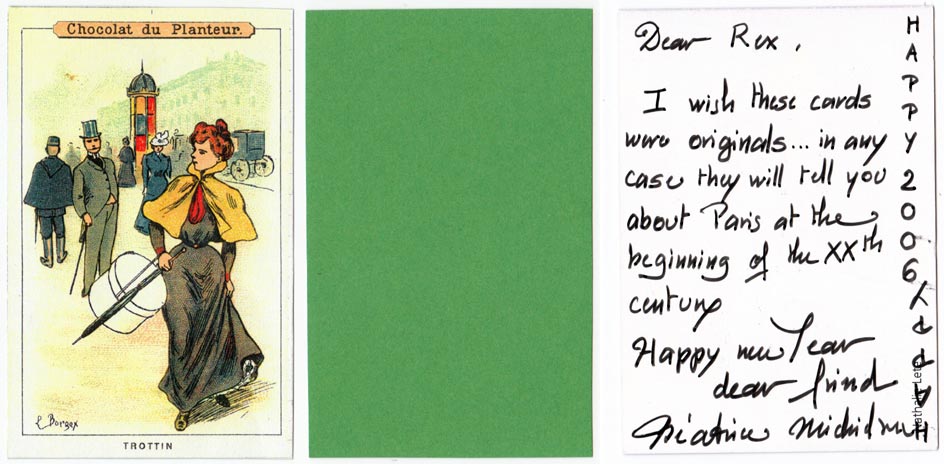 Chocolat du Planteur.
L. Borgex
TROTTIN
Dear Rex,
I wish these cards
were originals... in any
case they will tell you
about Paris at the
beginning of the XXth
century
Happy new Year
dear friend
Béatrice
HAPPY 2006 HAPPY
Nathalie Lété